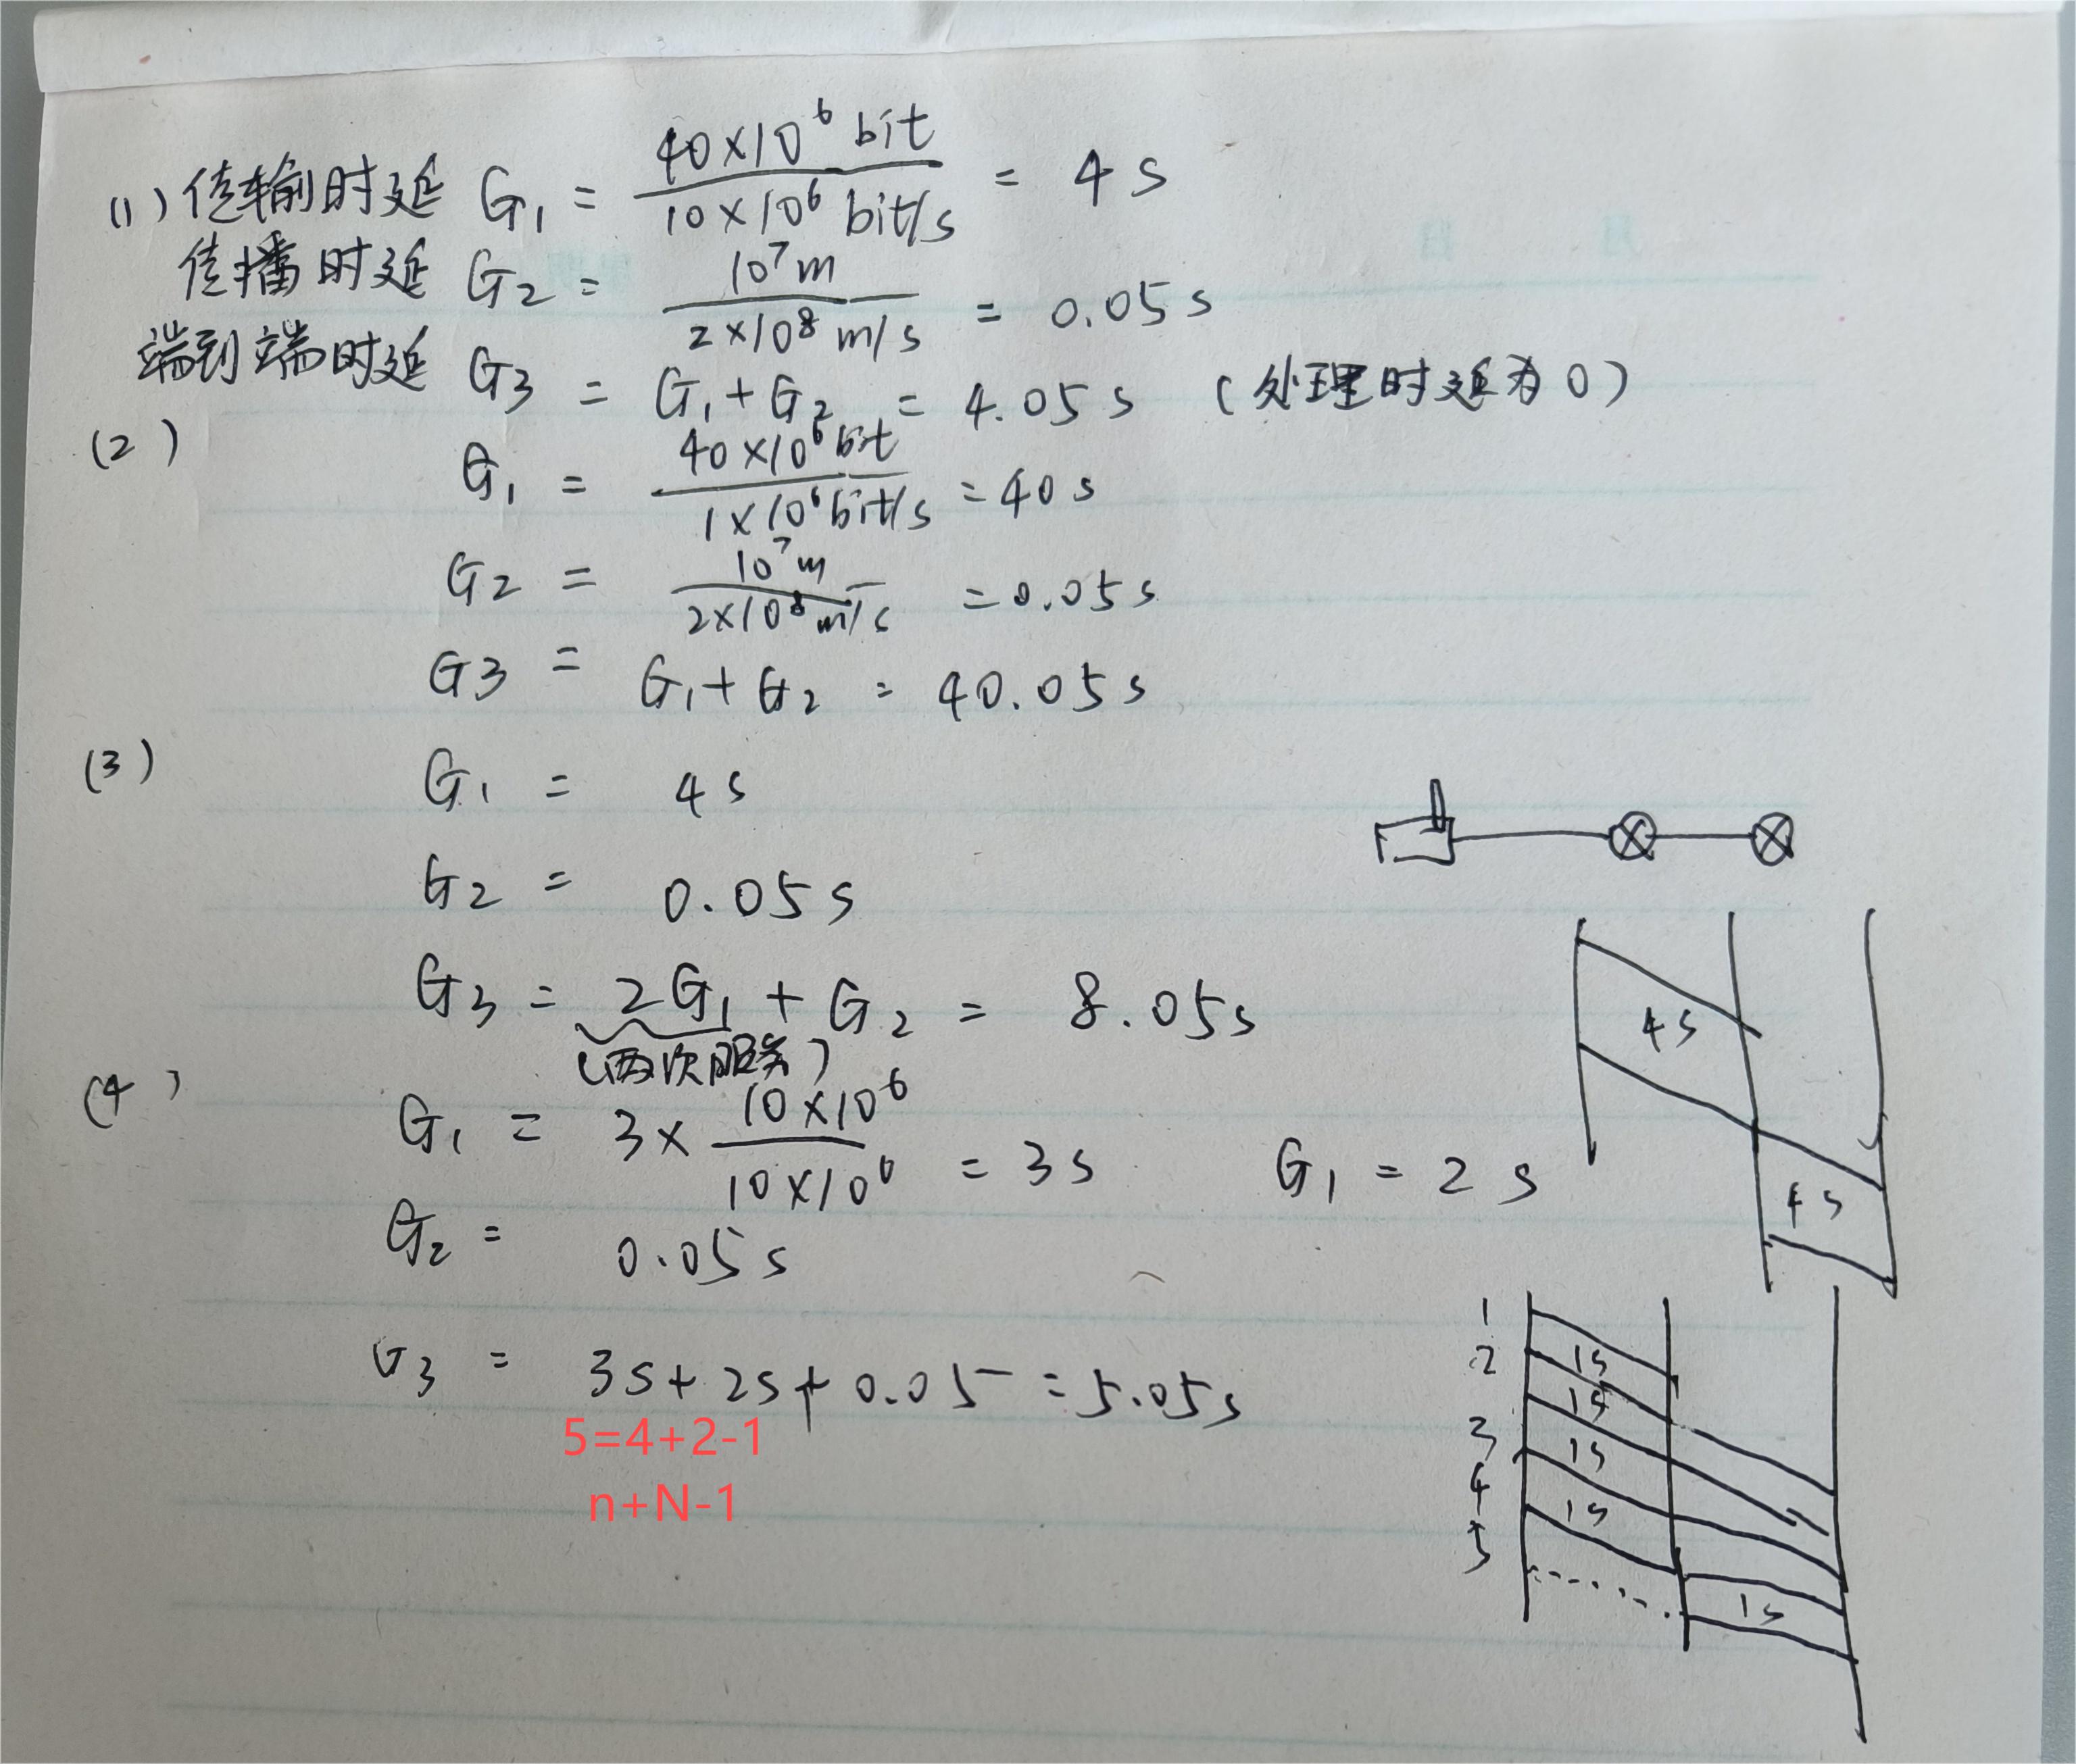 (1) 传输时延 G₁ = 40×10⁶ bit / 10×10⁶ bit/s = 4 s
传播时延 G₂ = 10⁷ m / 2×10⁸ m/s = 0.05 s
端到端时延 G3 = G₁ + G₂ = 4.05 s (处理时延为0)
(2) G₁ = 40×10⁶ bit / 1×10⁶ bit/s = 40 s
G₂ = 10⁷ m / 2×10⁸ m/s = 0.05 s
G3 = G₁ + G₂ = 40.05 s
(3) G₁ = 4 s
G₂ = 0.05 s
G₃ = 2G₁ + G₂ = 8.05 s
(两次服务)
4 s
4 s
(4) G₁ = 3× 10×10⁶ / 10×10⁶ = 3 s G₁ = 2 s
G₂ = 0.05 s
G₃ = 3 s + 2 s + 0.05 = 5.05 s
5=4+2-1
n+N-1
1
2
3
4
5
1 s
1 s
1 s
1 s
1 s